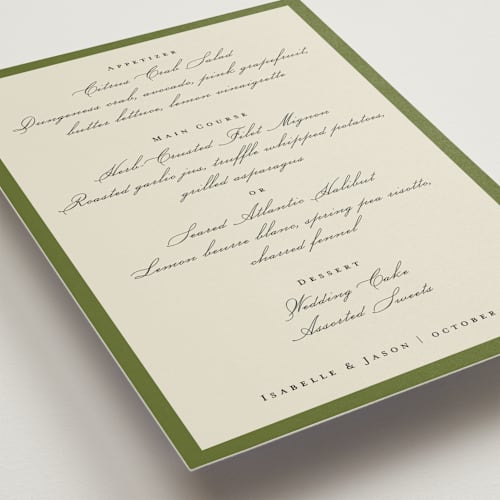 APPETIZER
Citrus Crab Salad
Dungeness crab, avocado, pink grapefruit,
butter lettuce, lemon vinaigrette
MAIN COURSE
Herb-Crusted Filet Mignon
Roasted garlic jus, truffle whipped potatoes,
grilled asparagus
OR
Seared Atlantic Halibut
Lemon beurre blanc, spring pea risotto,
charred fennel
DESSERT
Wedding Cake
Assorted Sweets
ISABELLE & JASON | OCTOBER